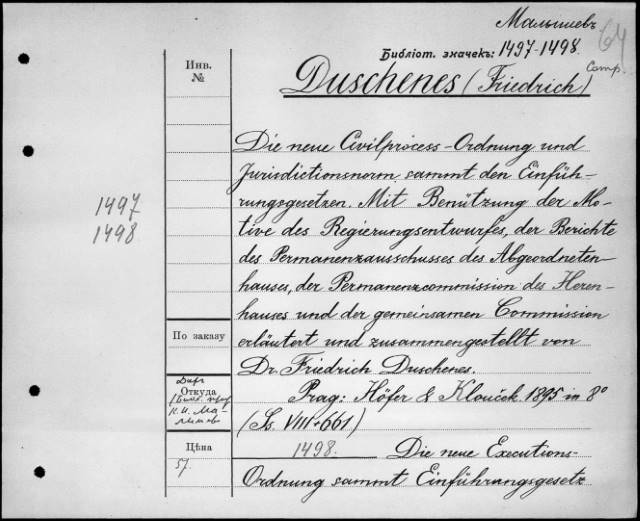 Малышевъ
64
Библіот. значекъ: 1497-1498.
Comp.
Инв.
№
Duschenes (Friedrich)
Die neue Civilprocess-Ordnung und
Jurisdictionsnorm sammt den Einfüh-
rungsgesetzen. Mit Benützung der Mo-
tive des Regierungsentwurfes, der Berichte
des Permanenzausschusses des Abgeordneten-
hauses, der Permanenzcommission des Heren-
hauses und der gemeinsamen Commission
erläutert und zusammengestellt von
Dr. Friedrich Duschenes.
Prag: Höfer & Klouček. 1895 in 8°
(Ss. VIII+661.)
1498. Die neue Executions-
Ordnung sammt Einführungsgesetz
1497
1498
По заказу
Откуда
К. И. Ма-
Цѣна
57.